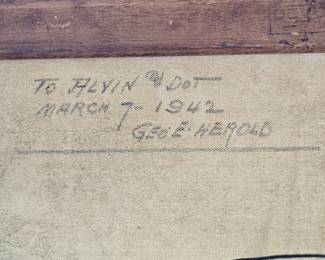 TO ALVIN & DOT
MARCH 7- 1942
GEO E. HEROLD